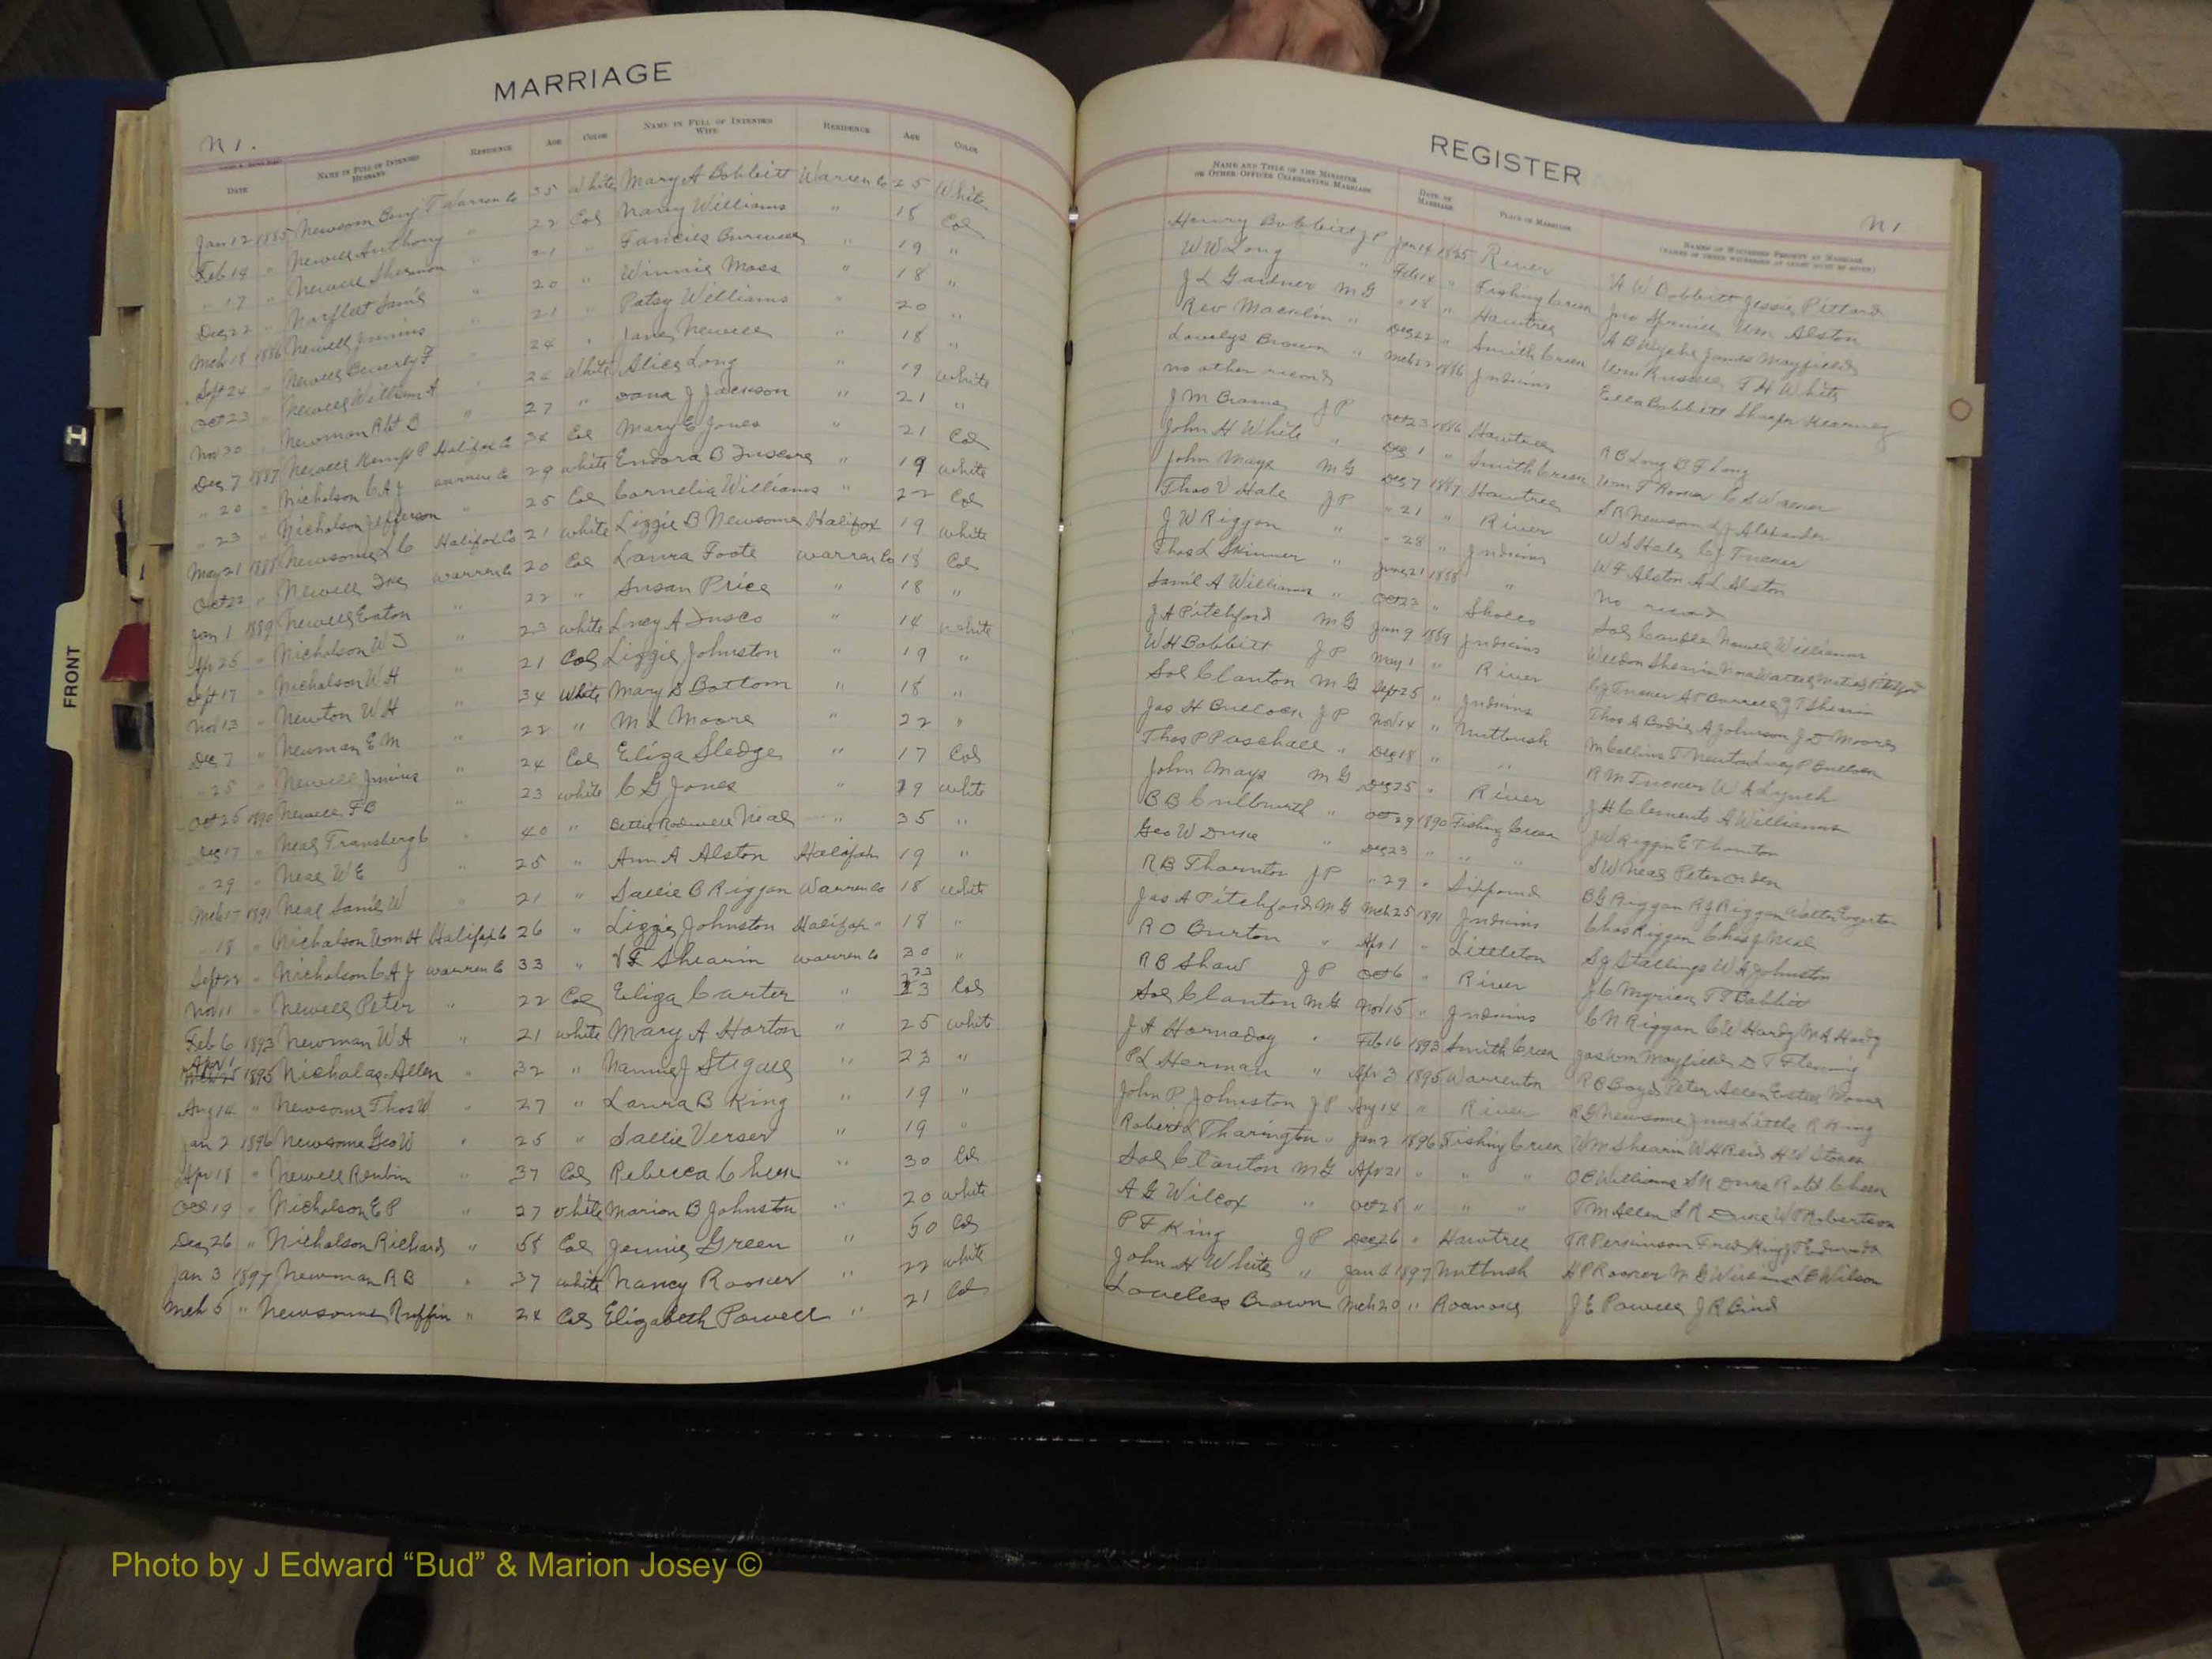 MARRIAGE
N 1.
DATE NAME IN FULL OF INTENDED HUSBAND RESIDENCE AGE COLOR NAME IN FULL OF INTENDED WIFE RESIDENCE AGE COLOR
Jan 12 1885 Newsom Benj T Warren Co 35 White Mary A Bobbitt Warren Co 25 White
Feb 14 " Newell Anthony " 22 Col Nancy Williams " 18 Col
" 17 " Newell Sherman " 21 " Burwell " 19 "
Dec 22 " Norfleet Saml " 20 " Winnie Moss " 18 "
Mch 18 1886 Newell Junius " 21 " Patsy Williams " 20 "
Sept 24 " Newell Beverly F " 24 " Jane Newell " 18 "
Oct 23 " Newell William A " 26 White Alice Long " 19 White
Nov 30 " Newman Robt B " 27 " J Jackson " 21 "
Dec 7 1887 Newell Kemp P Halifax Co 34 Col Mary E Jones " 21 Col
" 20 " Nicholson C A J Warren Co 29 white Endora B " 19 white
" 23 " Nicholson Jefferson " 25 Col Cornelia Williams " 22 Col
May 21 1888 Newsome L C Halifax Co 21 white Lizzie B Newsome Halifax 19 white
Oct 22 " Newell Warren Co 20 Col Laura Foote Warren Co 18 Col
Jan 1 1889 Newell Eaton " 22 " Susan Price " 18 "
Apr 25 " Nicholson W J " 23 white Lucy A " 14 white
Sept 17 " Nicholson W H " 21 Col Lizzie Johnston " 19 "
Nov 13 " Newton W H " 34 White Mary D Bottom " 18 "
Dec 7 " Newman E M " 22 " M L Moore " 22 "
" 25 " Newell Junius " 24 Col Eliza Sledge " 17 Col
Oct 25 1890 Newell F B " 23 white C G Jones " 19 white
Dec 17 " Neal C " 40 " Bettie Rodwell Neal " 35 "
" 29 " Neal W E " 25 " Ann A Alston Halifax 19 "
Mch 17 1891 Neal Saml W " 21 " Sallie B Riggan Warren Co 18 white
" 18 " Nicholson Wm H Halifax Co 26 " Lizzie Johnston Halifax " 18 "
Sept 22 " Nicholson C A J Warren Co 33 " Shearin Warren Co 30 "
Nov 11 " Newell Peter " 22 Col Eliza Carter " 23 Col
Feb 6 1893 Newman W A " 21 white Mary A Horton " 25 white
Apr 1 1895 Nicholas Allen " 32 " Nannie J Stegall " 23 "
Aug 14 " Newsome Thos W " 27 " Laura B King " 19 "
Jan 2 1896 Newsome Geo W " 25 " Sallie Verser " 19 "
Apr 18 " Newell Reubin " 37 Col Rebecca Cheek " 30 Col
Oct 19 " Nicholson E P " 27 white Marion B Johnston " 20 white
Dec 26 " Nicholson Richard " 58 Col Jennie Green " 50 Col
Jan 3 1897 Newman R B " 37 white Nancy Rooker " 22 white
Mch 5 " Newsome Ruffin " 24 Col Elizabeth Powell " 21 Col
REGISTER
N 1
NAME AND TITLE OF THE MINISTER OR OTHER OFFICER CELEBRATING MARRIAGE DATE OF MARRIAGE PLACE OF MARRIAGE NAMES OF WITNESSES PRESENT AT MARRIAGE
Henry Bobbitt J P Jan 14 1885 River A W Bobbitt Jessie Pittard
W W Long " Feb 14 " Fishing Creek Jno Wm Alston
J L Gardner M G " 18 " Hawtree A B James Mayfield
Rev Macklin " Dec 22 " Smith Creek Wm Russell T H White
Lovelys Brown " Mch 22 1886 Judkins Ella Bobbitt Sharpe Kearney
no other record
J M Brame J P Oct 23 1886 Hawtree R B Long B F Long
John H White " Dec 1 " Smith Creek Wm T Rooker C S Warner
John Mayo M G Dec 7 1887 Hawtree S R Newsom L J Alexander
Thos V Hale J P " 21 " River W S Hale C J Tucker
J W Riggan " " 28 " Judkins W F Alston A L Alston
Thos L Skinner " June 21 1888 " no record
Saml A Williams " Oct 22 " Shocco
J A Pitchford M G Jan 9 1889 Judkins Weldon Shearin
W H Bobbitt J P May 1 " River C J Tucker
Sol Clanton M G Sept 25 " Judkins Thos A A Johnson J D Moore
Jas H Bullock J P Nov 14 " Nutbush
Thos P Paschall " Dec 18 " " R M Tucker W A Lynch
John Mayo M G Dec 25 " River J H Clements A Williams
B B Culbreth " Oct 29 1890 Fishing Creek J W Riggan E Thornton
Geo W Duke " Dec 23 " " " S W Neal Peter
R B Thornton J P " 29 " Sixpound B G Riggan R J Riggan
Jas A Pitchford M G Mch 25 1891 Judkins Chas Riggan Chas J Neal
R O Burton " Apr 1 " Littleton S G Stallings W A Johnston
R B Shaw J P Oct 6 " River J C Myrick T T Bobbitt
Sol Clanton M G Nov 15 " Judkins C N Riggan C W Hardy M A Hardy
J A Hornaday " Feb 16 1893 Smith Creek Mayfield D T Fleming
P L Herman " Apr 3 1895 Warrenton R C Boyd Peter Allen
John P Johnston J P Aug 14 " River R G Newsome June Little R King
Robert L Tharington " Jan 2 1896 Fishing Creek W M Shearin W H Reid H W Stokes
Sol Clanton M G Apr 21 " " " O E Williams S R Duke Robt Cheek
A G Wilcox " Oct 28 " " " T M Allen S R Duke W T Robertson
P F King J P Dec 26 " Hawtree T R Perkinson Fred King
John H White " Jan 6 1897 Nutbush H P Rooker L E Wilson
Loveless Brown Mch 20 " Roanoke J E Powell J R
FRONT
Photo by J Edward “Bud” & Marion Josey ©